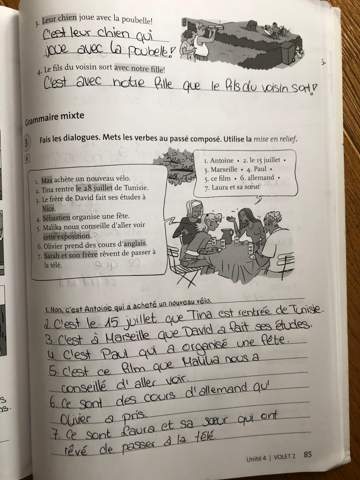 3. Leur chien joue avec la poubelle!
C'est leur chien qui
joue avec la poubelle!
4. Le fils du voisin sort avec notre fille!
C'est avec notre fille que le fils du voisin sort!
Grammaire mixte
Fais les dialogues. Mets les verbes au passé composé. Utilise la mise en relief.
1. Max achète un nouveau vélo.
2. Tina rentre le 28 juillet de Tunisie.
3. Le frère de David fait ses études à
Nice.
4. Sébastien organise une fête.
5. Malika nous conseille d'aller voir
cette exposition.
6. Olivier prend des cours d'anglais.
7. Sarah et son frère rêvent de passer à
la télé.
1. Antoine • 2. le 15 juillet •
3. Marseille • 4. Paul •
5. ce film • 6. allemand •
7. Laura et sa sœur
1. Non, c'est Antoine qui a acheté un nouveau vélo.
2. C'est le 15 juillet que Tina est rentrée de Tunisie.
3. C'est à Marseille que David a fait ses études.
4. C'est Paul qui a organisé une fête.
5. C'est ce film que Malika nous a
conseillé d'aller voir.
6. Ce sont des cours d'allemand qu'
Olivier a pris.
7. Ce sont Laura et sa sœur qui ont
rêvé de passer à la télé
Unité 4 | VOLET 2 85